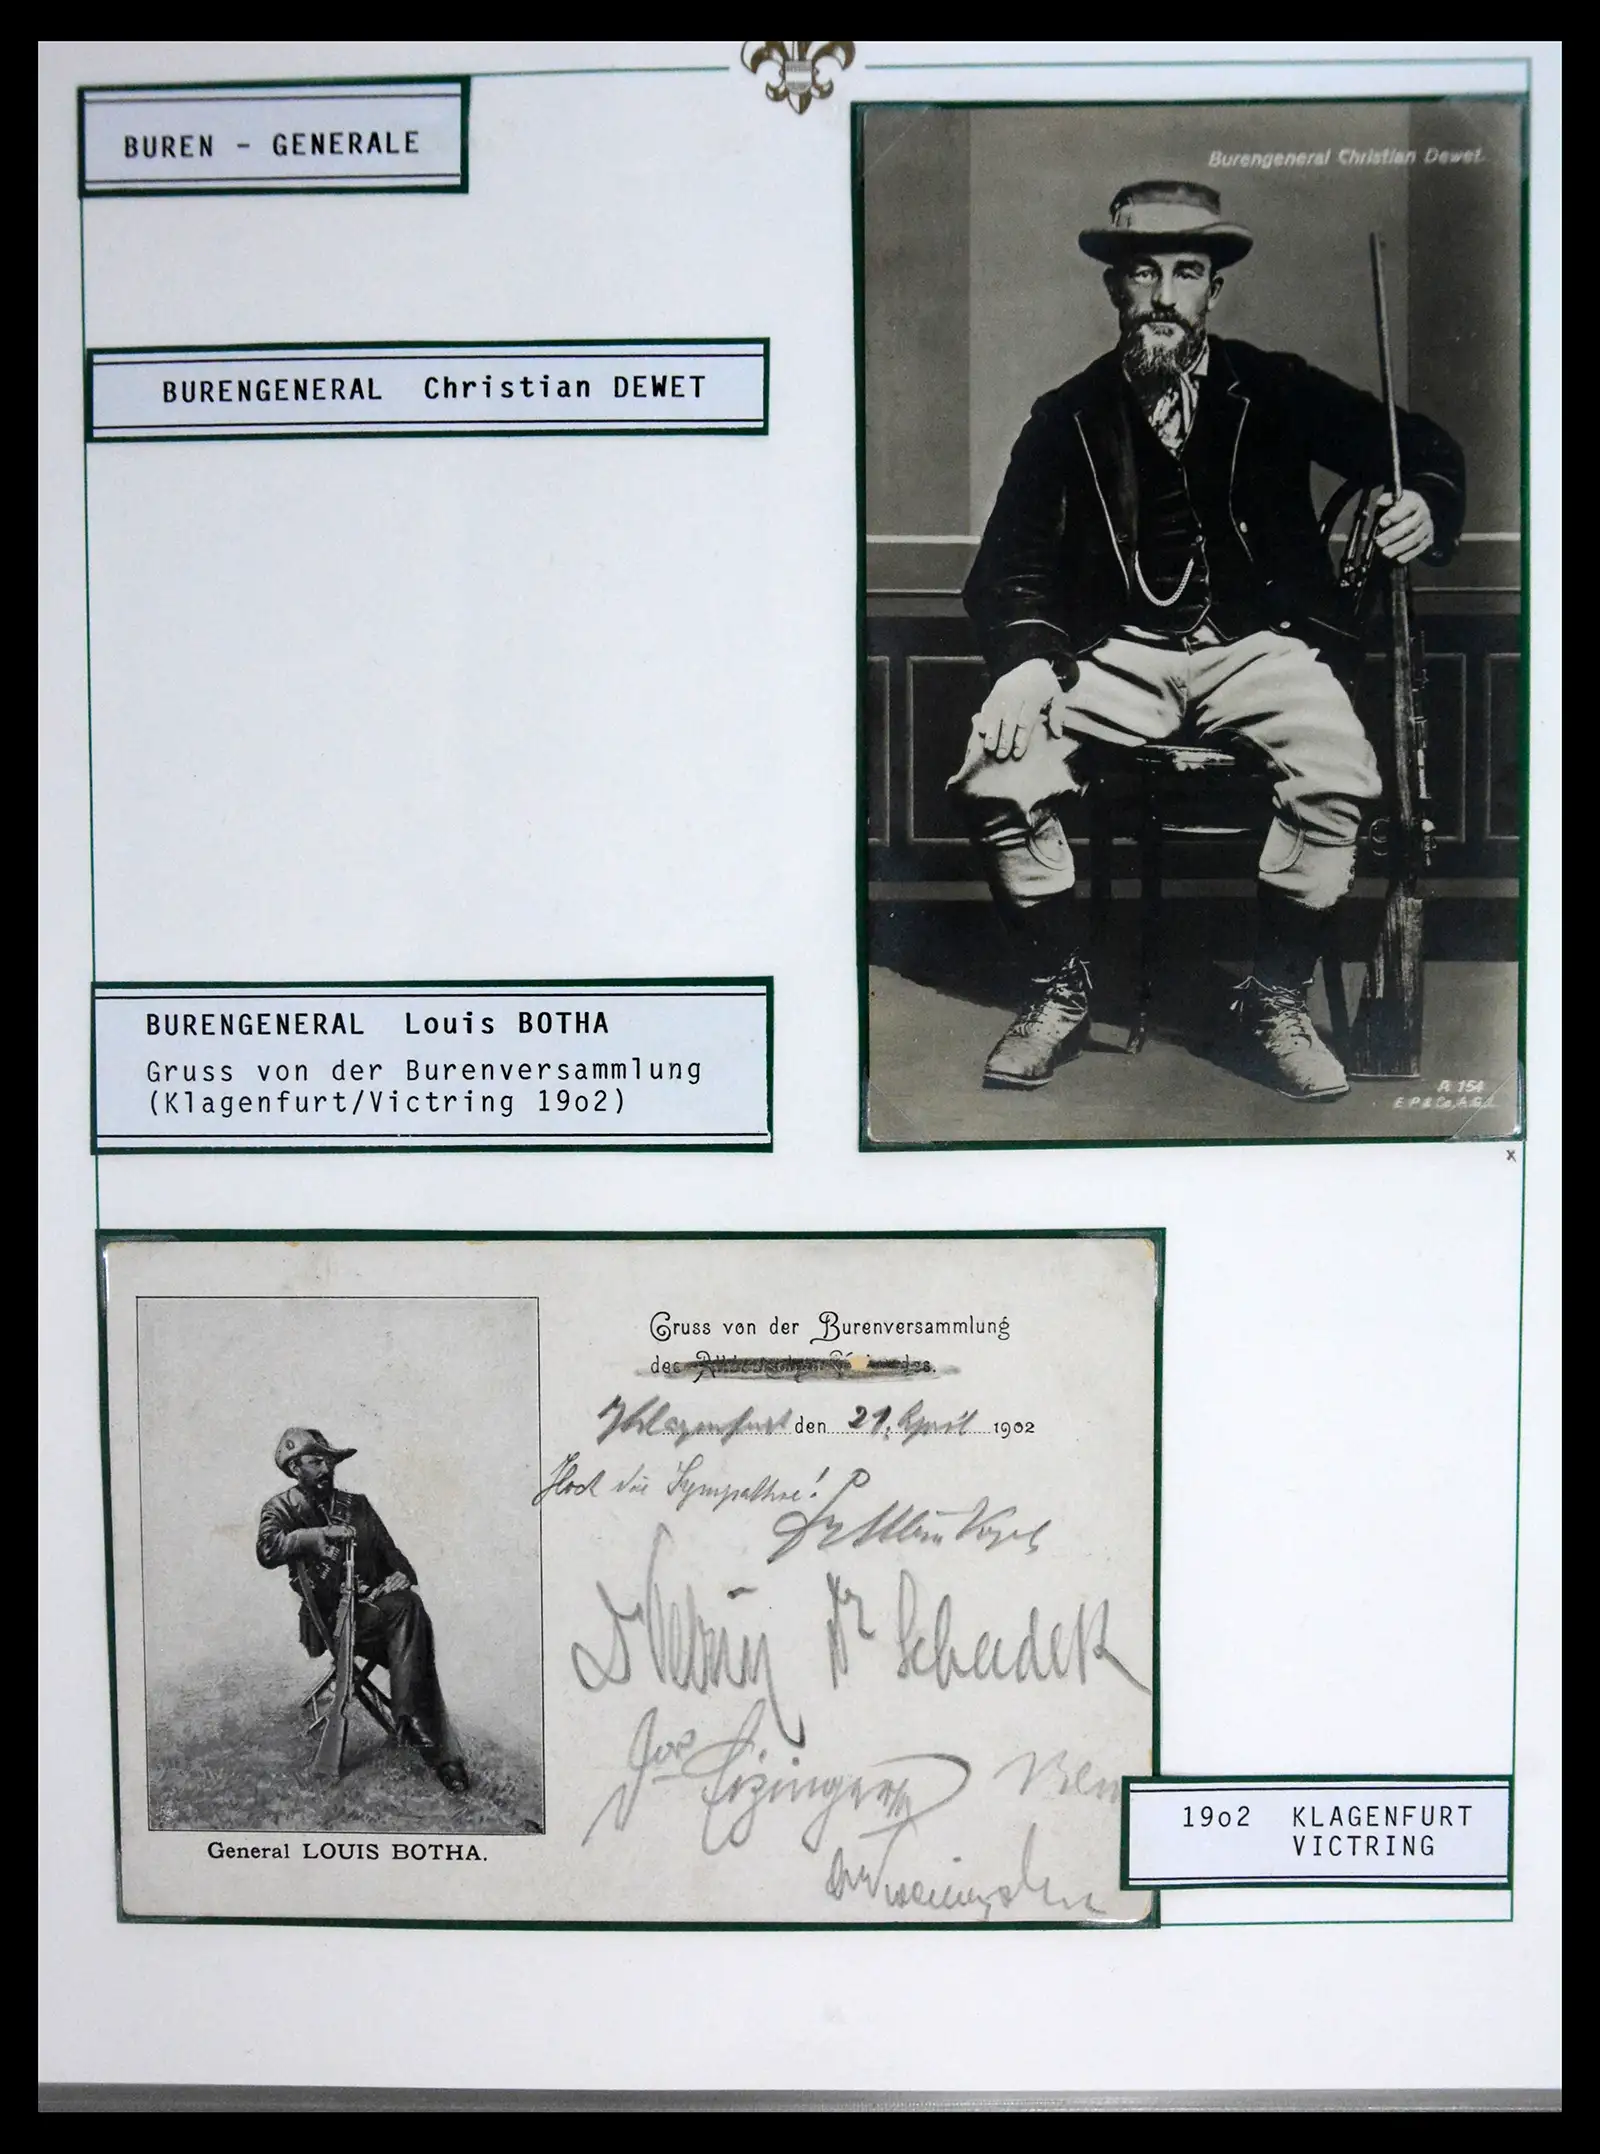 BUREN - GENERALE
Burengeneral Christian Dewet.
BURENGENERAL Christian DEWET
BURENGENERAL Louis BOTHA
Gruss von der Burenversammlung
(Klagenfurt/Victring 19o2)
A 154
E.P. & Co. A.G.L.
x
Gruss von der Burenversammlung
des
Klagenfurt den 21. April 1902
Hoch die Sympathie!
Dr
Dr Schadek
Jos
General LOUIS BOTHA.
19o2 KLAGENFURT
VICTRING